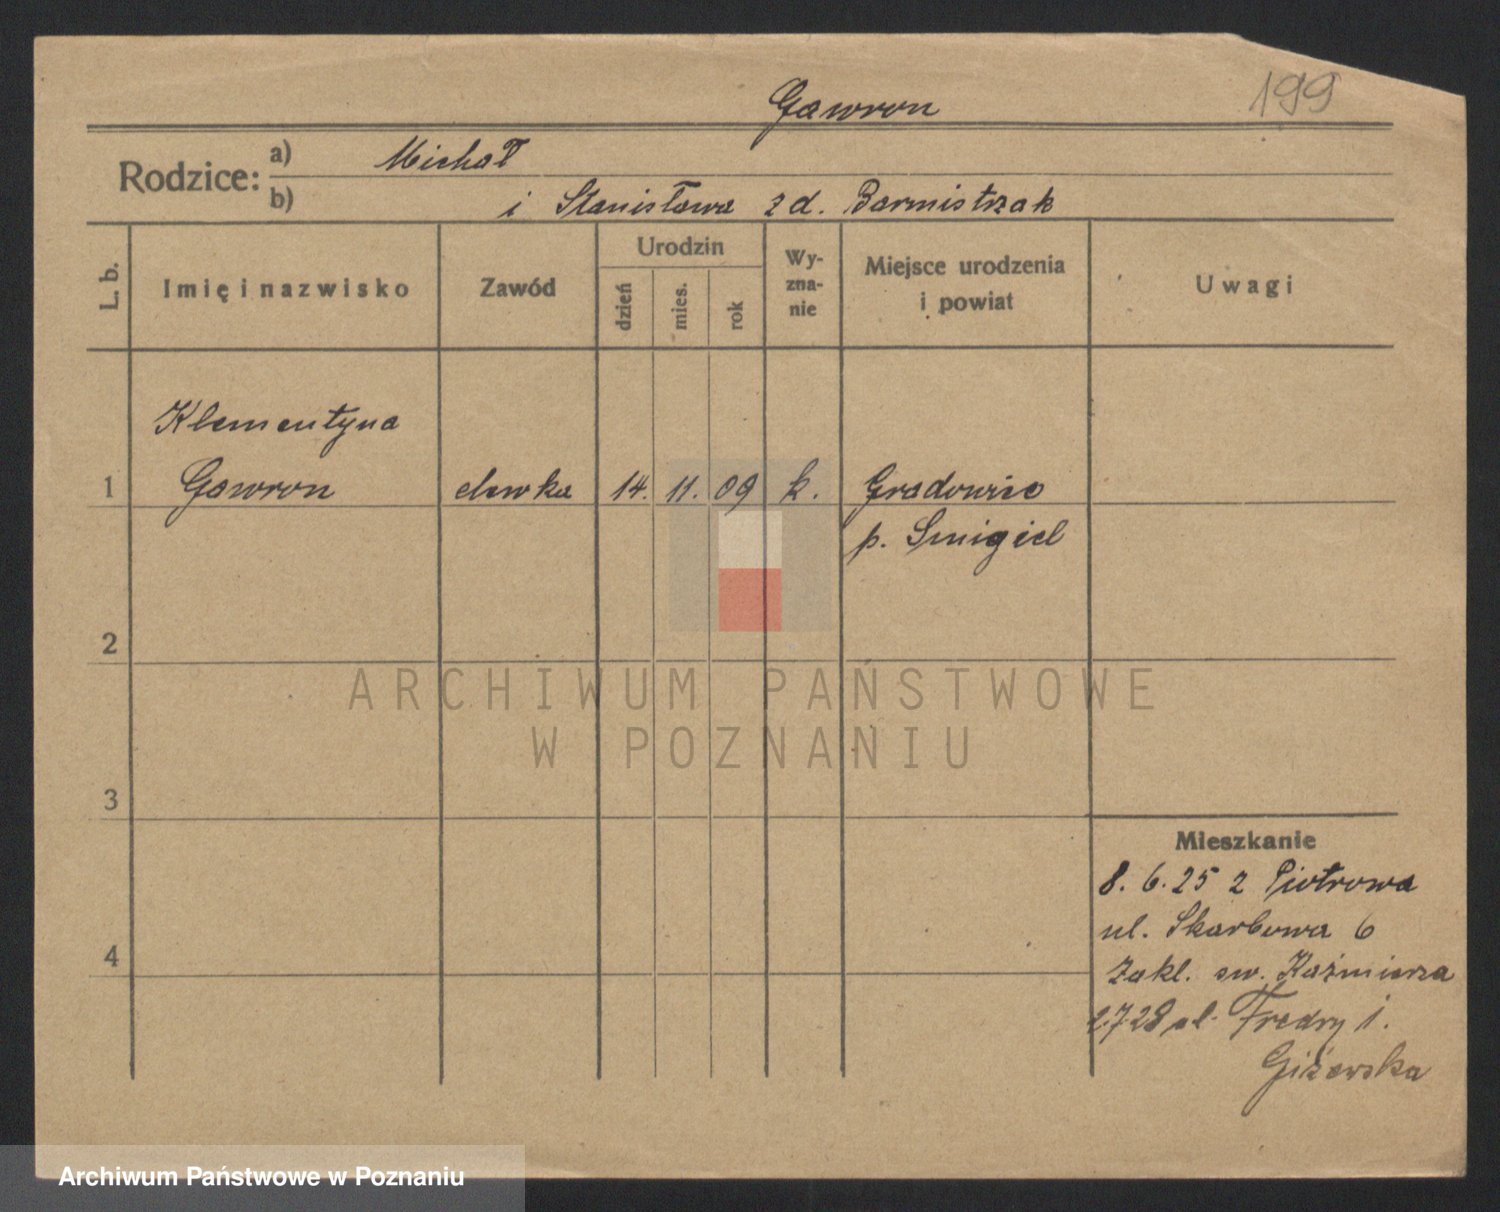 199
Gawron
Rodzice: a) Michał
b) i Stanisława z d. Barmistrzak
L. b.
Imię i nazwisko
Zawód
Urodzin
dzień
mies.
rok
Wy-
zna-
nie
Miejsce urodzenia
i powiat
Uwagi
Klementyna
1 Gawron elewka 14. 11. 09 k. Gradowice
p. Smigiel
2
3
4
Mieszkanie
8. 6. 25 z Piotrowa
ul. Skarbowa 6
Zakl. sw. Kaźmierza
2.7.28 ul. Fredry 1.
Giżewska
ARCHIWUM PAŃSTWOWE
W POZNANIU
Archiwum Państwowe w Poznaniu